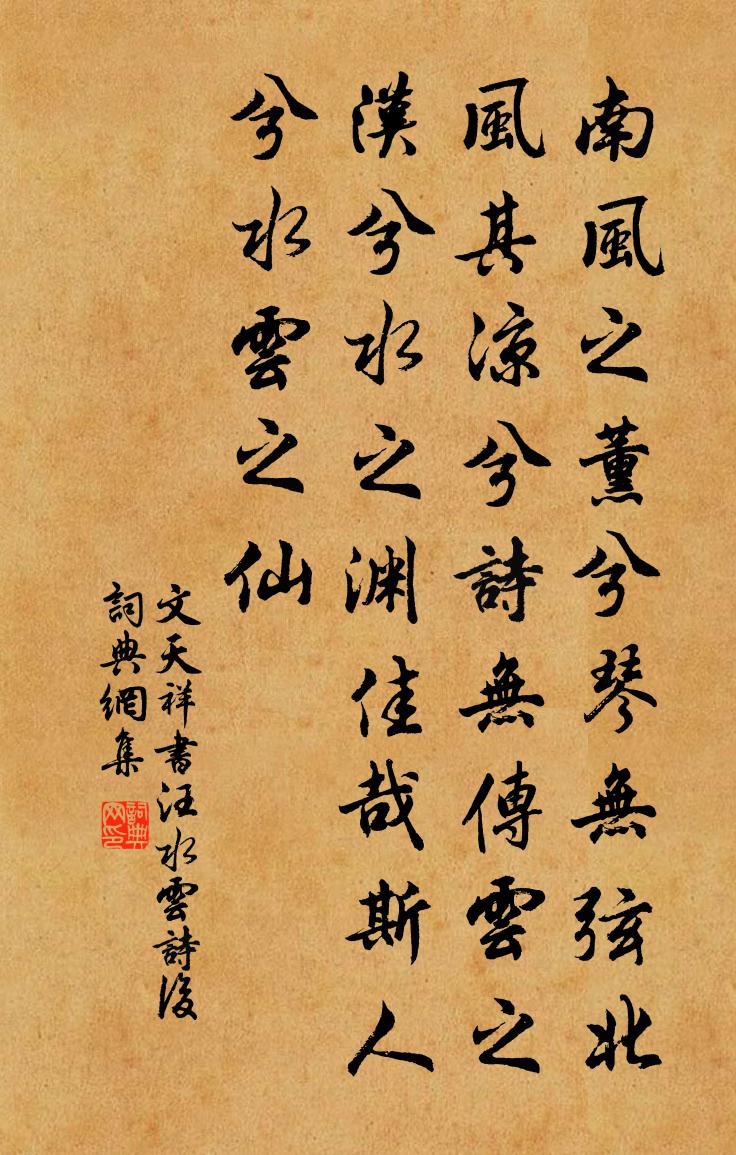 南風之薰兮琴無弦北
風其涼兮詩無傳雲之
漢兮水之淵佳哉斯人
兮水雲之仙
文天祥書汪水雲詩後
詞典網集
詞典网印